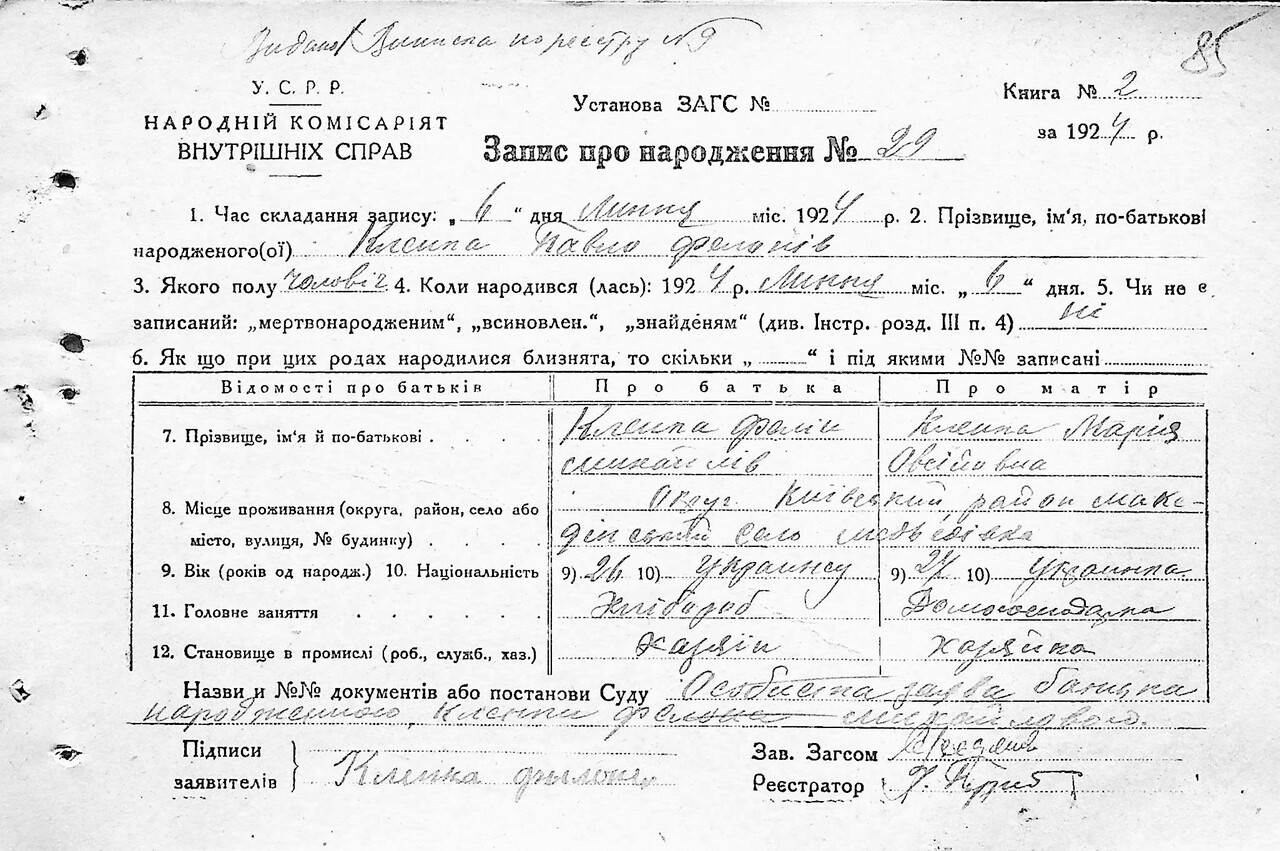 Видано Виписка по реестру №9
85
У. С. Р. Р.
НАРОДНІЙ КОМІСАРІЯТ
ВНУТРІШНІХ СПРАВ
Установа ЗАГС №
Книга № 2
за 1924 р.
Запис про народження № 29
1. Час складання запису: „ 6 “ дня Липня міс. 1924 р. 2. Прізвище, ім'я, по-батькові
народженого(ої) Клепка Павло
3. Якого полу чоловіч 4. Коли народився (лась): 1924 р. Липня міс. „ 6 “ дня. 5. Чи не є
записаний: „мертвонародженим“, „всиновлен.“, „знайденям“ (див. Інстр. розд. III п. 4) ні
6. Як що при цих родах народилися близнята, то скільки „ “ і під якими №№ записані
Відомості про батьків Про батька Про матір
7. Прізвище, ім'я й по-батькові Клепка Клепка Марія
михайлів Овсіївна
8. Місце проживання (округа, район, село або Округ Київський, район мака-
місто, вулиця, № будинку) село
9. Вік (років од народж.) 10. Національність 9) 26 10) 9) 10) Украинка
11. Головне заняття Хлібороб Домогосподарка
12. Становище в промислі (роб., служб., хаз.) Хазяін Хазяйка
Назви и №№ документів або постанови Суду Особиста заява батька
народженного, Клепки михайлового.
Підписи
заявителів
Клепка
Зав. Загсом
Реєстратор